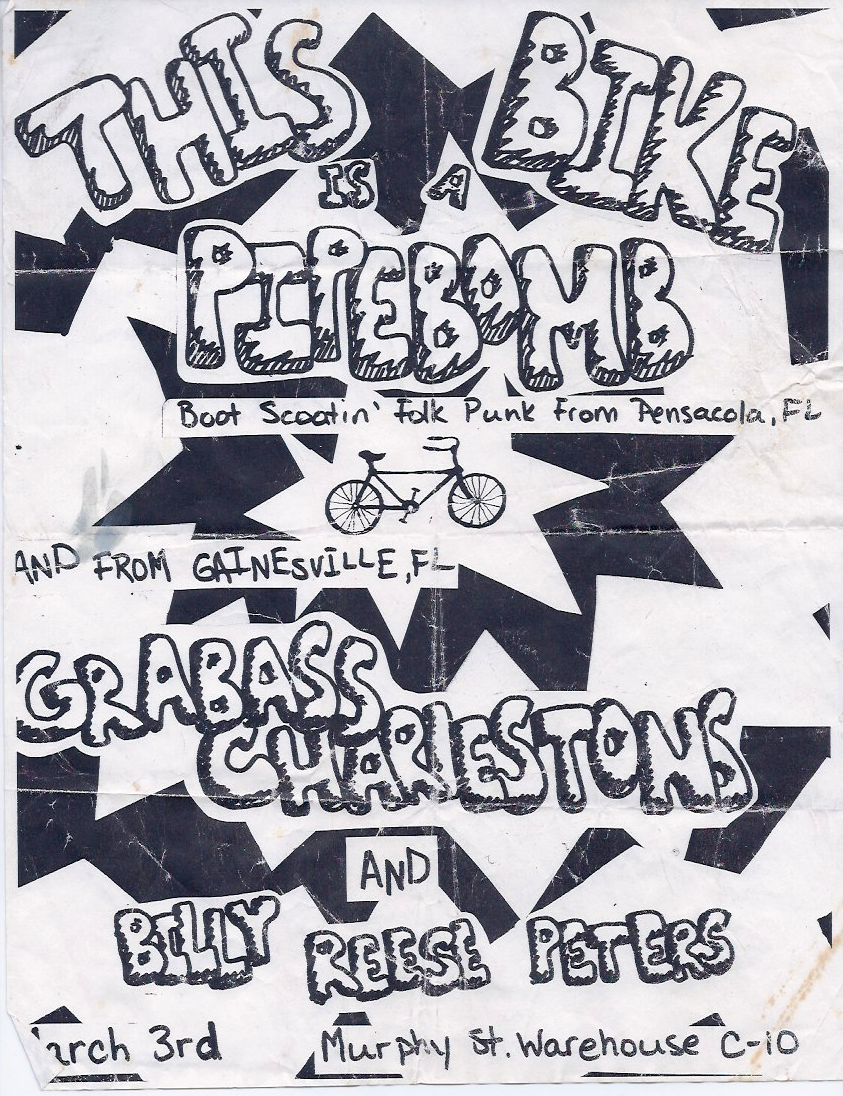 THIS BIKE
IS A
PIPEBOMB
Boot Scootin' Folk Punk From Pensacola, FL
AND FROM GAINESVILLE, FL
GRABASS
CHARLESTONS
AND
BILLY REESE PETERS
arch 3rd Murphy St. Warehouse C-10